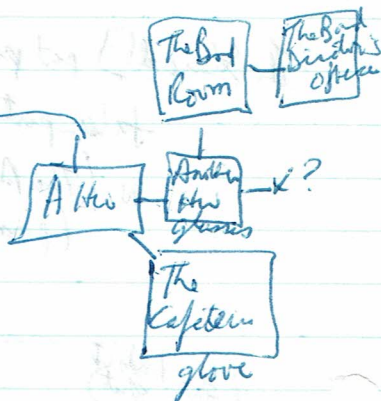 The Band
Room
The Band
Director's
Office
A Hw
Another
Hw
glasses
x?
The
Cafeteria
glove